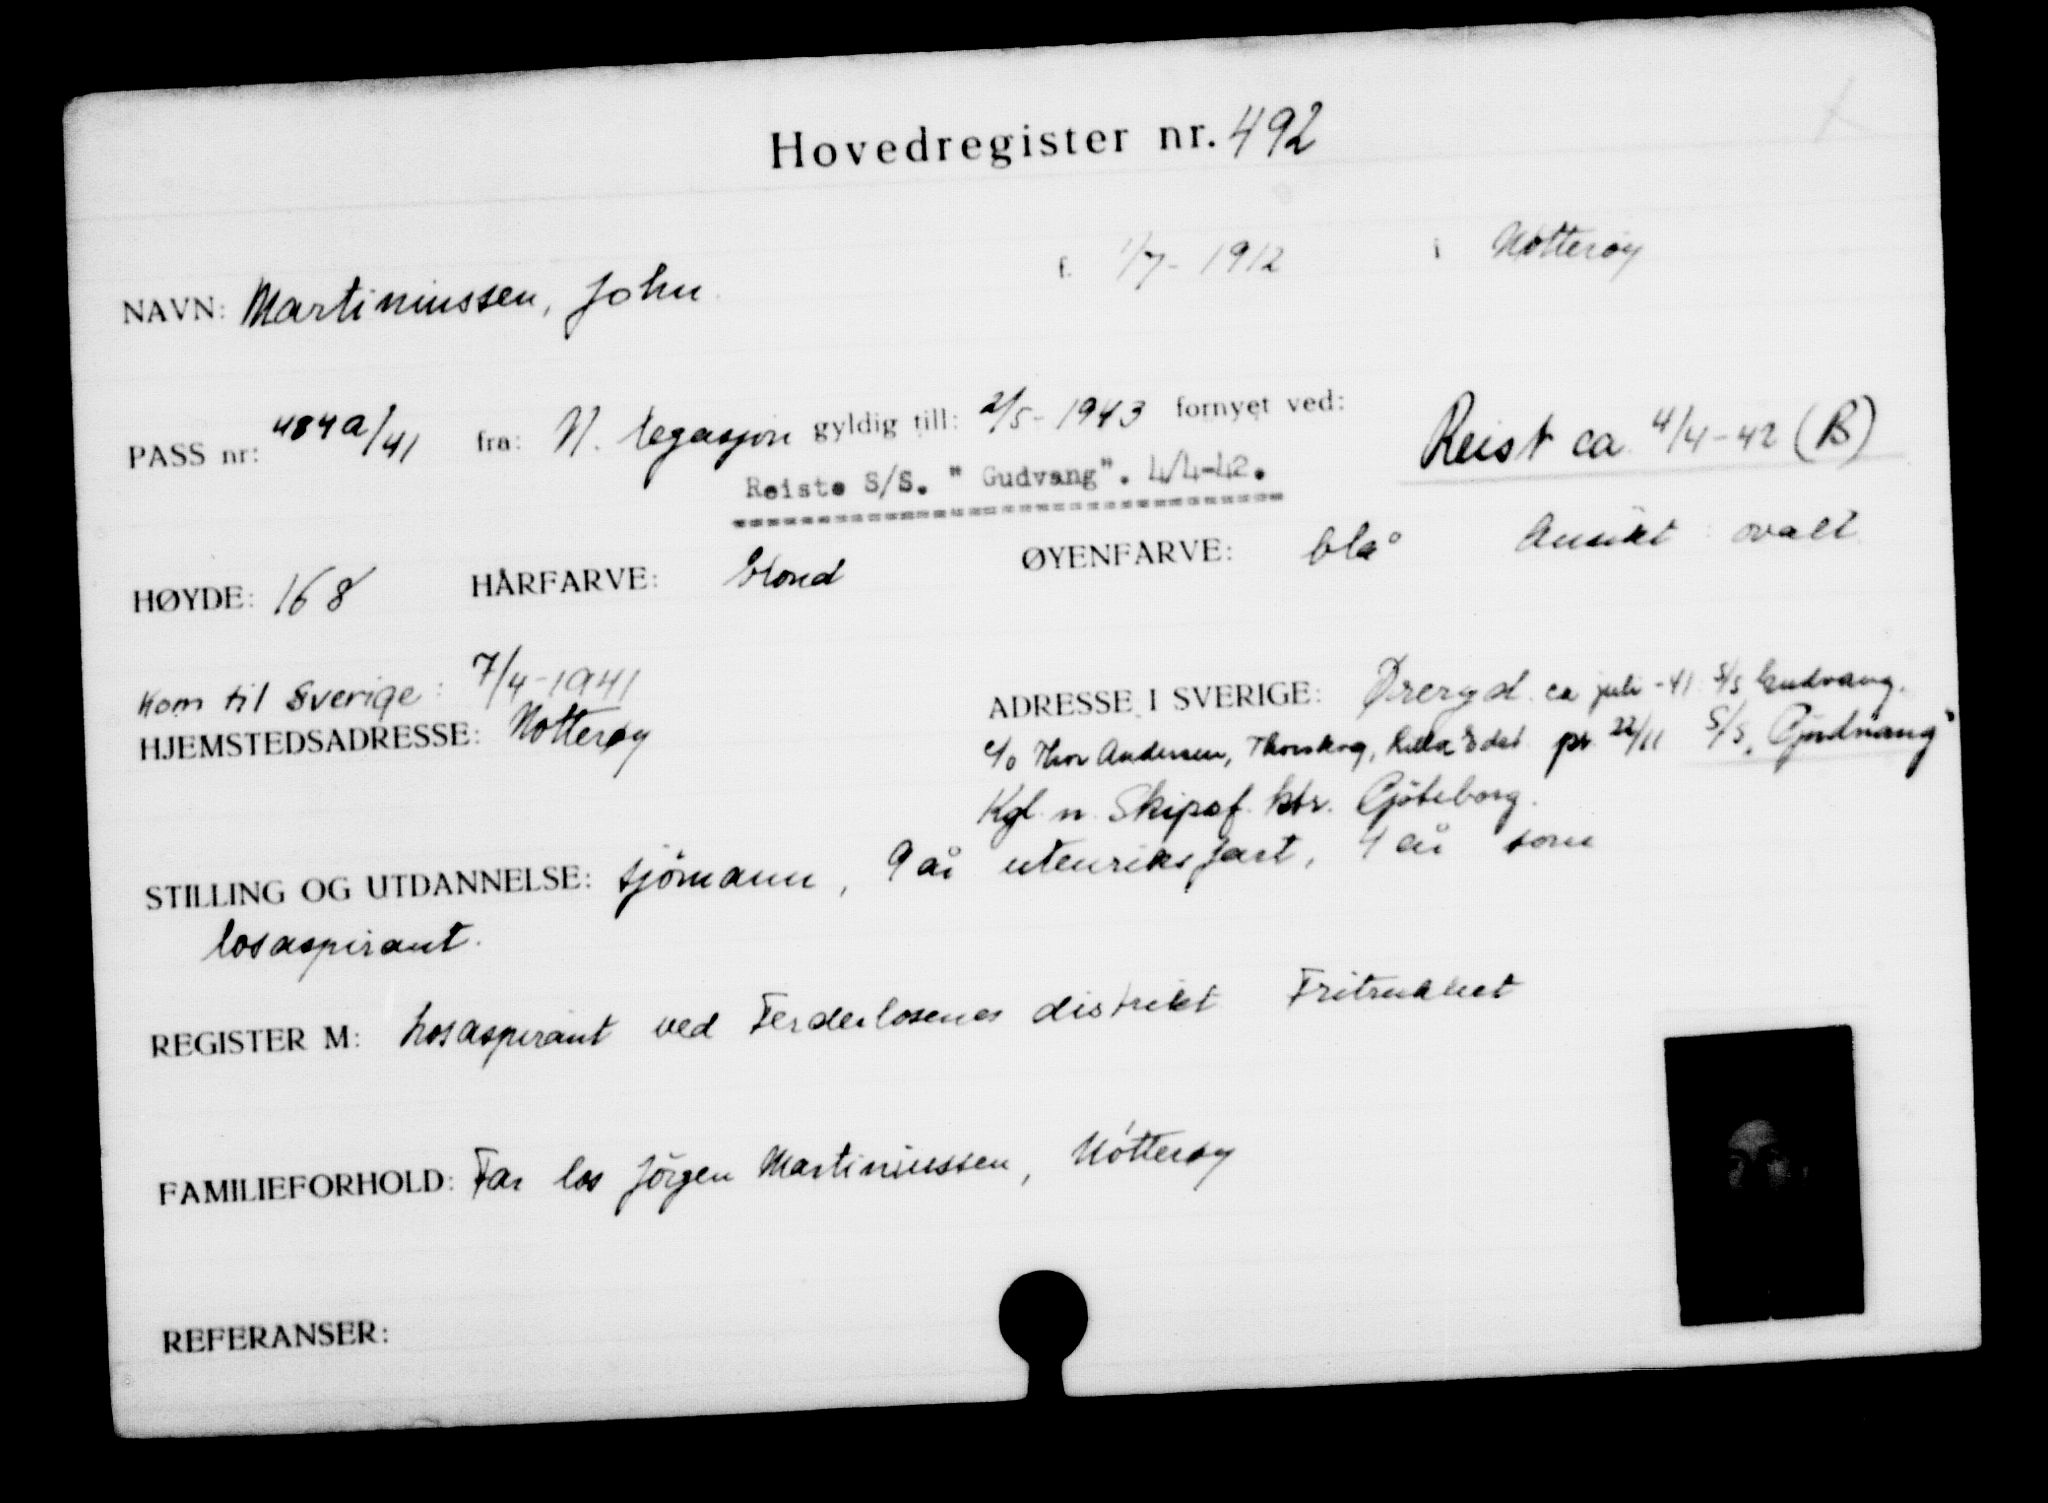 Hovedregister nr. 492
NAVN: Martiniussen, John. f. 1/7-1912 i Nötteröy
PASS nr: 484a/41 fra: N. legasjon gyldig till: 2/5-1943 fornyet ved: Reist ca 4/4-42 (B)
Reiste S/S. " Gudvang". 4/4-42.
HØYDE: 168 HÅRFARVE: blond ØYENFARVE: blå Ansikt ovalt
Kom til Sverige: 7/4-1941
HJEMSTEDSADRESSE: Nötteröy
ADRESSE I SVERIGE: Øreryd ca juli -41 S/S Gudvang.
c/o Thor Andersen, Thorskog, Lilla Edet pr 22/11 S/S "Gudvang"
Kgl. n. Skipsf. ktr. Göteborg.
STILLING OG UTDANNELSE: sjömann, 9 år utenriksfart, 4 år som
losaspirant.
REGISTER M: Losaspirant ved Ferderlosenes distrikt Fritrukket
FAMILIEFORHOLD: Far los Jörgen Martiniussen, Nötteröy
REFERANSER: